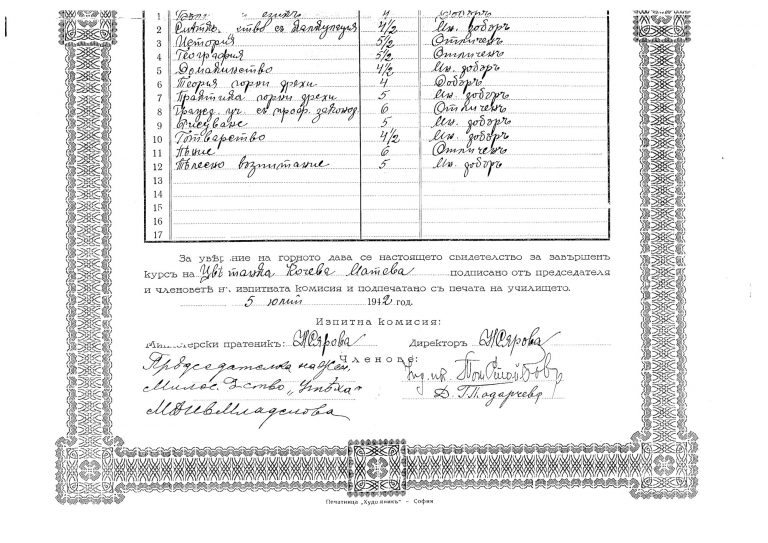 1 езикъ 4 Добъръ
2 Смѣтанство съ калкулация 4/2 Мн. добъръ
3 История 5/2 Отличенъ
4 География 5/2 Отличенъ
5 Домакинство 4/2 Мн. добъръ
6 Теория горни дрехи 4 Добъръ
7 Практика горни дрехи 5 Мн. добъръ
8 Гражд. уч. съ проф. законод. 6 Отличенъ
9 Рисуване 5 Мн. добъръ
10 Готварство 4/2 Мн. добъръ
11 Пѣние 6 Отличенъ
12 Тѣлесно возпитание 5 Мн. добъръ
13
14
15
16
17
За увѣрение на горното дава се настоящето свидетелство за завършенъ
курсъ на Цвѣтанка Кочева Матева подписано отъ председателя
и членоветѣ на изпитната комисия и подпечатано съ печата на училището.
5 юлий 1942 год.
Изпитна комисия:
Министерски пратеникъ: Директоръ
Членове:
Председателка на Жен.
Милос. Д-ство „Утѣха“
Печатница „Художникъ“ – София